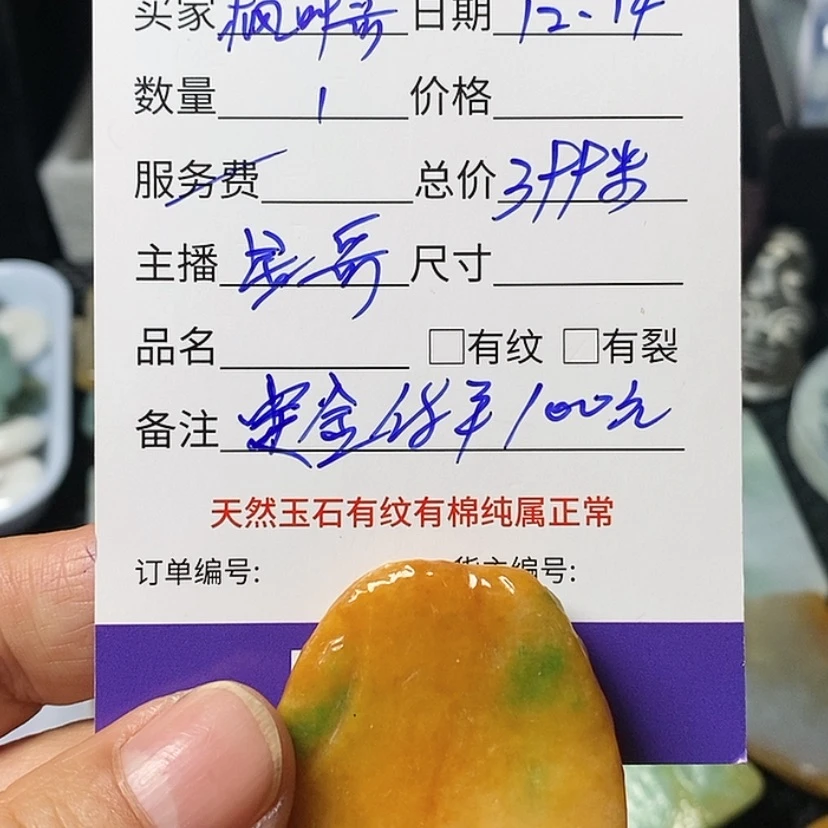 买家 枫叶哥 日期 12.14
数量 1 价格
服务费 总价 399米
主播 尺寸
品名 □有纹 □有裂
备注 定金 100元
天然玉石有纹有棉纯属正常
订单编号: 货主编号: